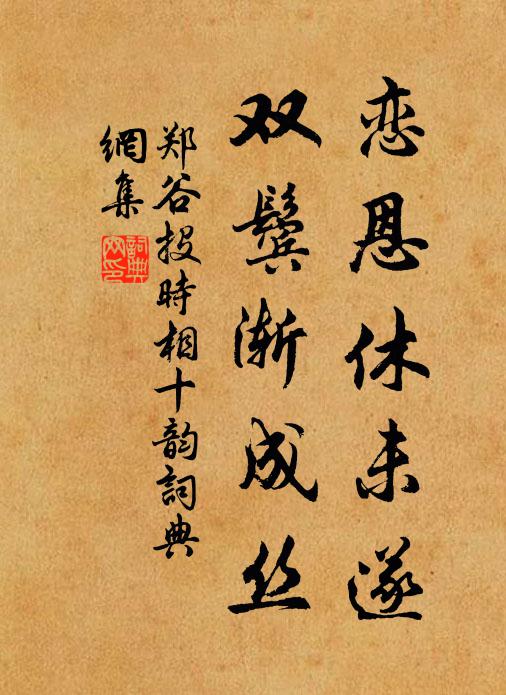 恋恩休未遂
双鬓渐成丝
郑谷投时相十韵詞典
網集
詞典
网印